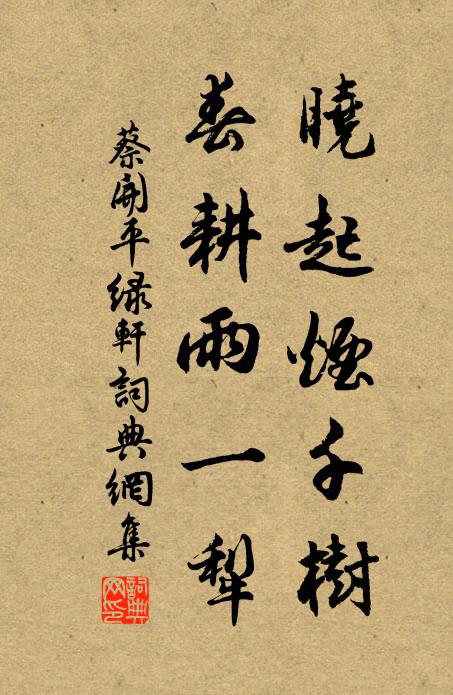 曉起煙千樹
春耕雨一犁
蔡開平綠軒詞典網集
詞典網印